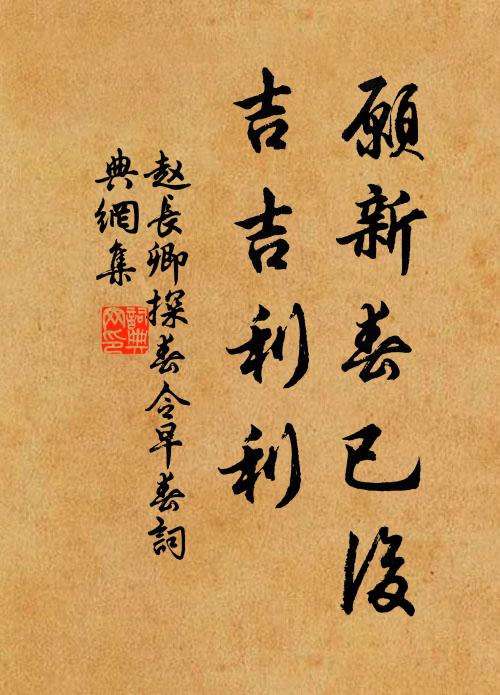 願新春已後
吉吉利利
赵長卿探春令早春詞
典網集
詞典
网印